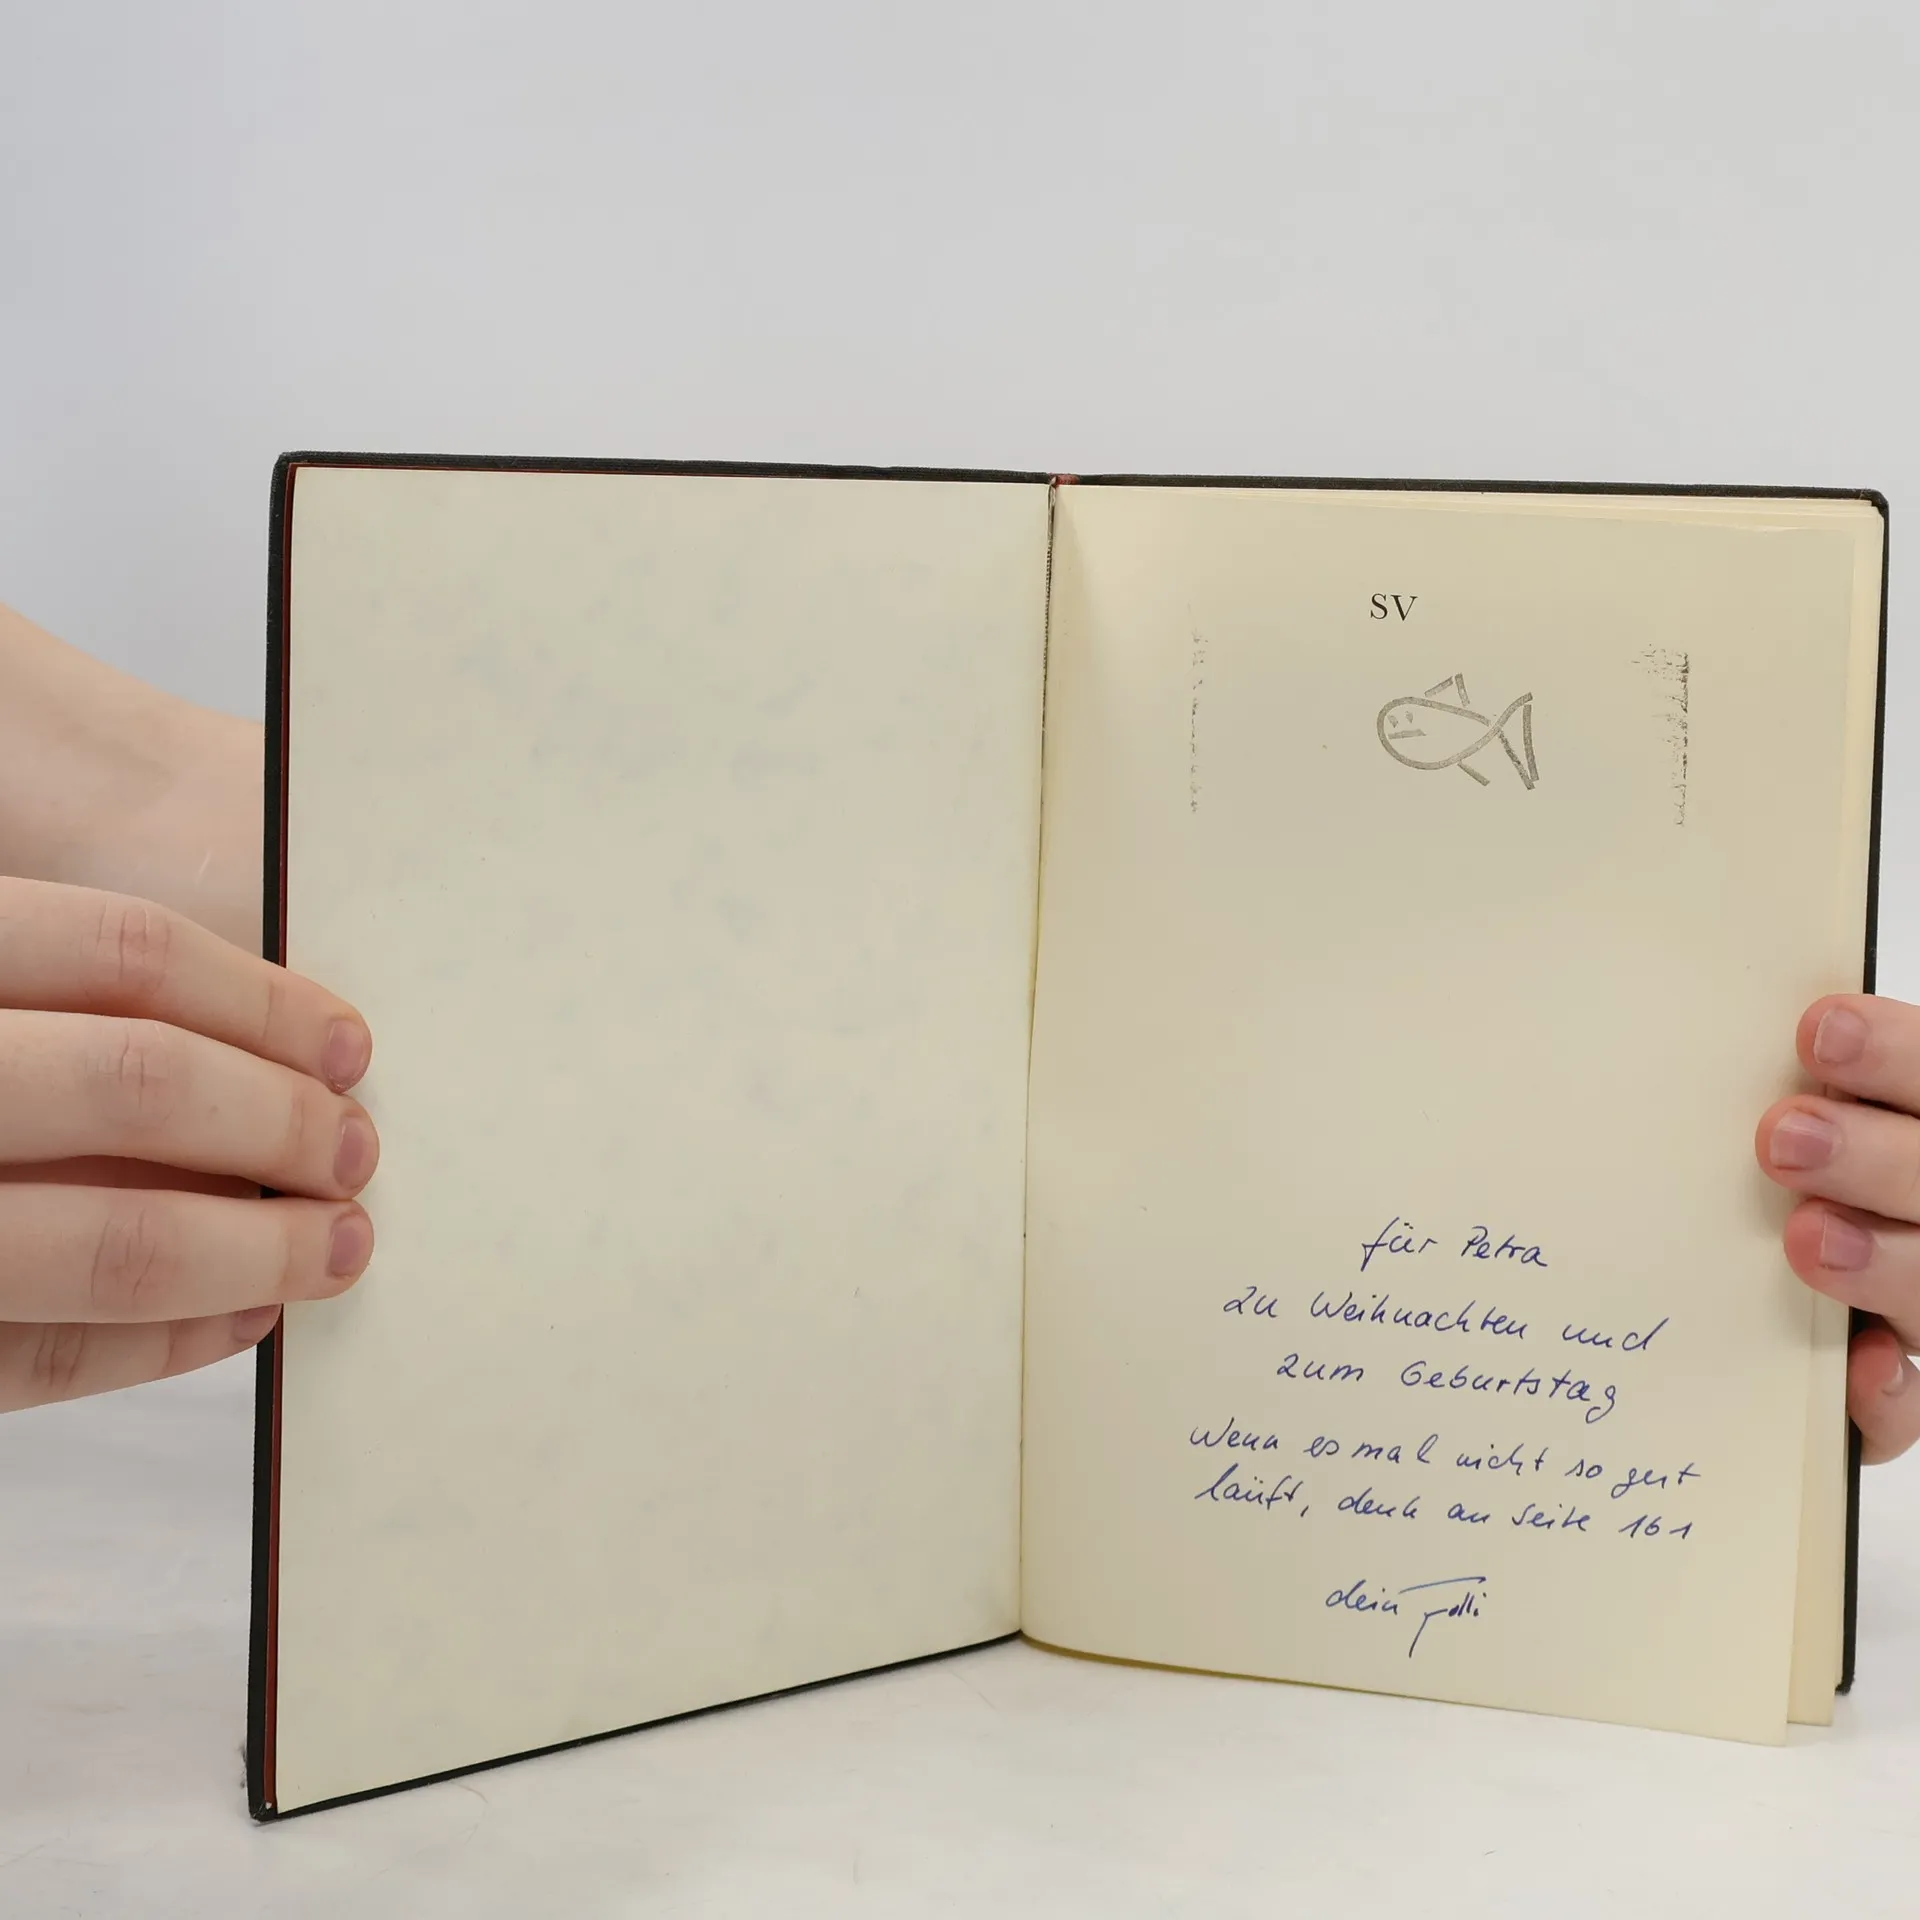 SV
für Petra
zu Weihnachten und
zum Geburtstag
Wenn es mal nicht so gut
läuft, denk an Seite 161
dein